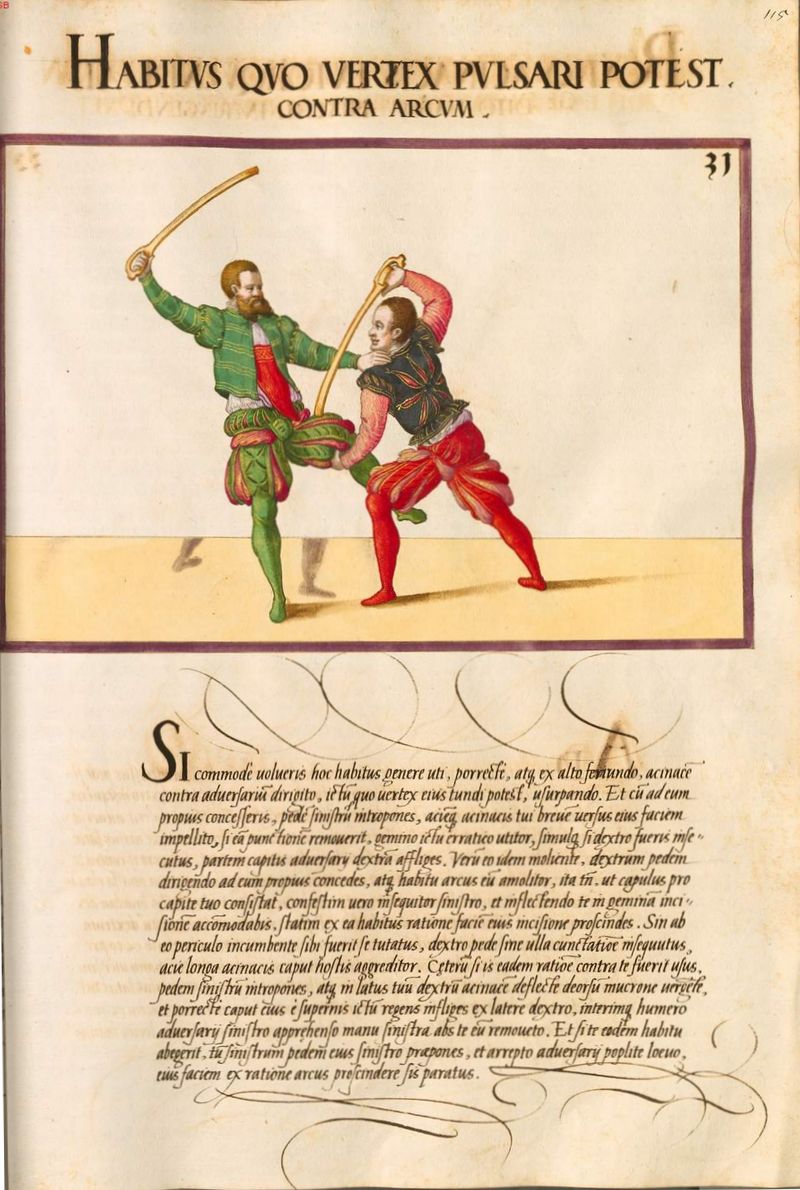 115
HABITVS QVO VERTEX PVLSARI POTEST.
CONTRA ARCVM.
31
SI commodè uolueris hoc habitus genere uti, porrectè, atq ex alto feriundo, acinacē
contra aduersariū dirigito, ictū, quo uertex eius tundi potest, usurpando. Et cū ad eum
propius concesseris, pedē sinistrū intropones, aciēq acinacis tui breuē uersus eius faciem
impellito, si eā punctionē remouerit, gemino ictu erratico utitor, simulq si dextro fueris inse-
cutus, partem capitis aduersarij dextrā affliges. Verū eo idem moliente, dextrum pedem
dirigendo ad eum propius concedes, atq habitu arcus eū amolitor, ita tn̄. ut capulus pro
capite tuo consistat, confestim uero insequitor sinistro, et inflectendo te in gemina inci-
sionē accōmodabis, statim ex ea habitus ratione faciē eius incisione proscindes. Sin ab
eo periculo incumbente sibi fuerit se tutatus, dextro pede sine ulla cunctatiōe insequutus,
acie longa acinacis caput hostis aggreditor. Ceterū si is eadem ratiōe contra te fuerit usus,
pedem sinistrū intropones, atq in latus tuū dextrū acinacē deflecte deorsū mucrone uergēte,
et porrectè caput eius è supernis ictū regens infliges ex latere dextro, interimq humero
aduersarij sinistro apprehenso manu sinistra abs te eū remoueto. Et si te eodem habitu
abegerit, tū sinistrum pedem eius sinistro præpones, et arrepto aduersarij poplite loeuo,
eius faciem ex ratione arcus proscindere sis paratus.